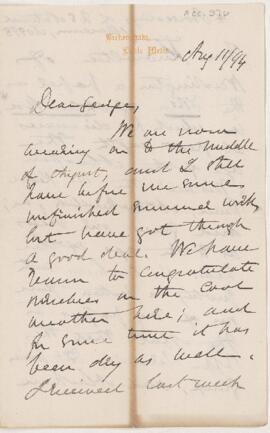 Aug 11/94
Dear George,
We are now
wearing on to the middle
of August, and I still
have before me some
unfinished summer work,
but have got through
a good deal. We have
reason to congratulate
ourselves on the cool
weather here; and
for some time it has
been dry as well.
I received last week